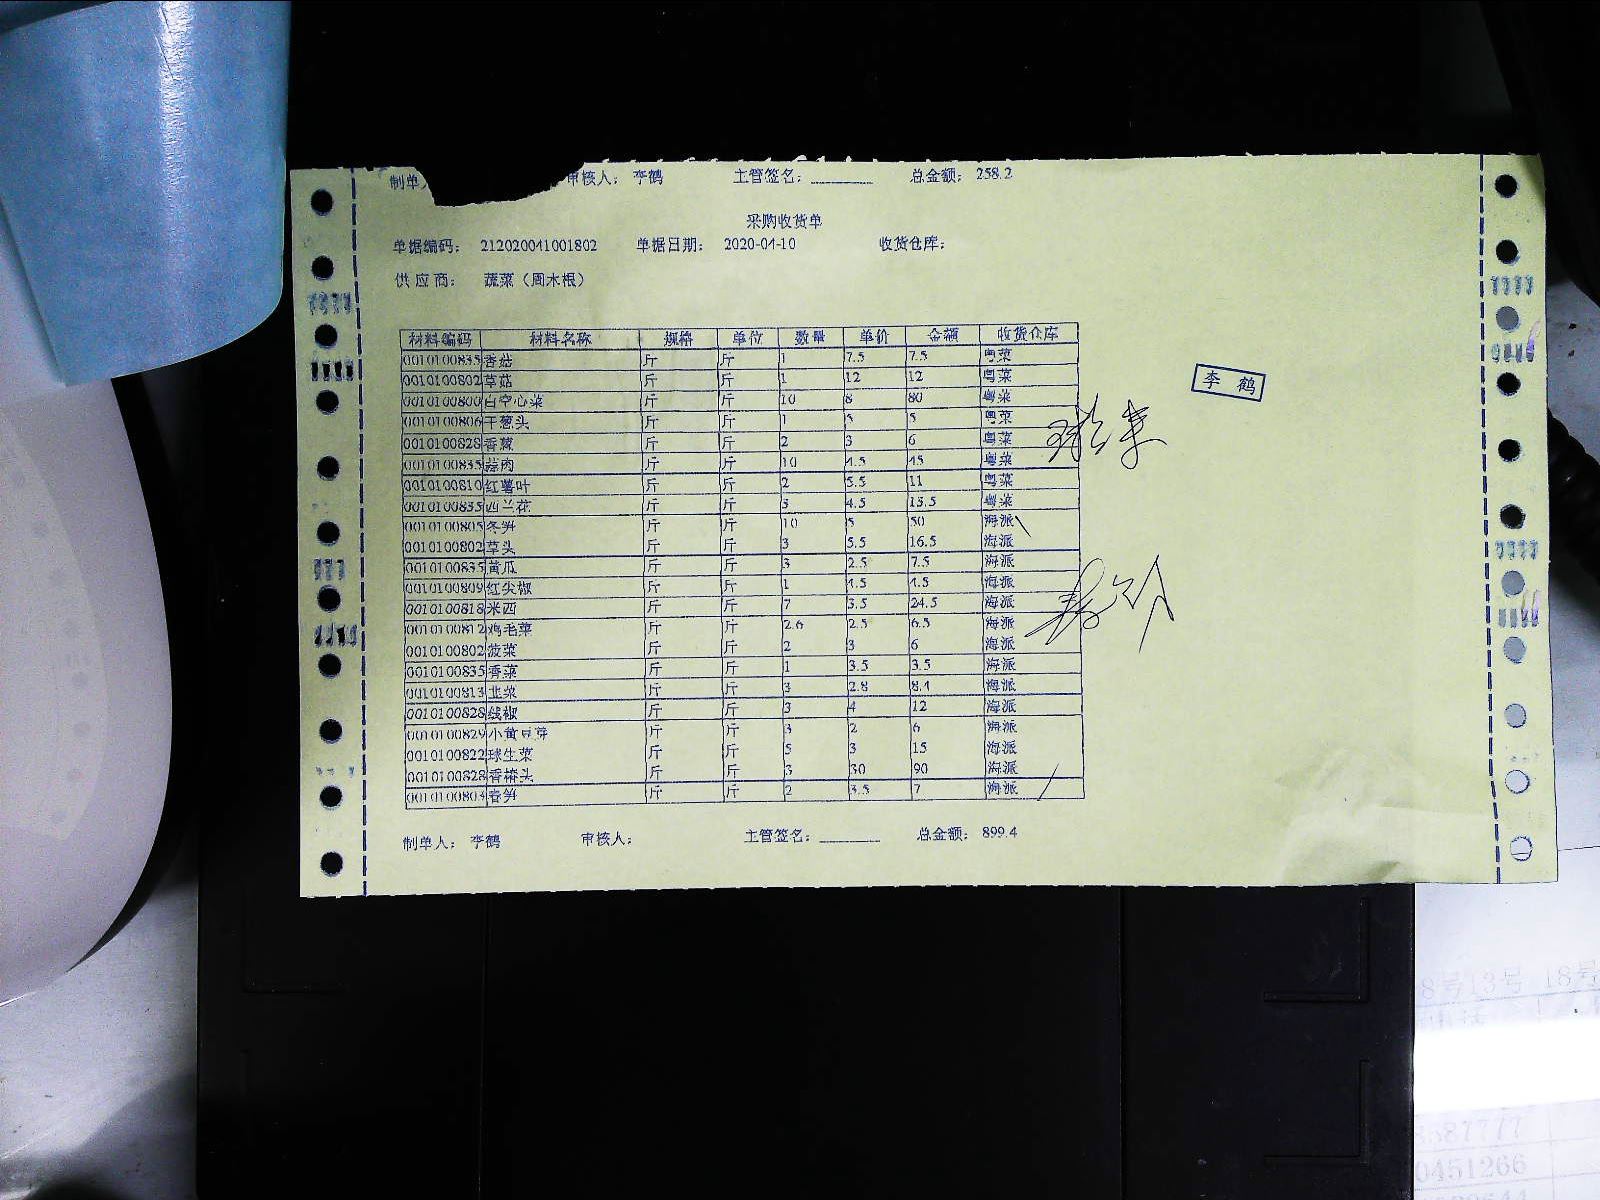 审核人： 李鹤 主管签名：________ 总金额： 258.2
采购收货单
单据编码： 212020041001802 单据日期： 2020-04-10 收货仓库：
供 应 商： 蔬菜（周木根）
材料编码 材料名称 规格 单位 数量 单价 金额 收货仓库
0010100835 香菇 斤 斤 1 7.5 7.5 粤菜
0010100802 草菇 斤 斤 1 12 12 粤菜
0010100800 白空心菜 斤 斤 10 8 80 粤菜
0010100806 干葱头 斤 斤 1 5 5 粤菜
0010100828 香葱 斤 斤 2 3 6 粤菜
0010100835 蒜肉 斤 斤 10 4.5 45 粤菜
0010100810 红薯叶 斤 斤 2 5.5 11 粤菜
0010100835 西兰花 斤 斤 3 4.5 13.5 粤菜
0010100805 冬笋 斤 斤 10 5 50 海派
0010100802 草头 斤 斤 3 5.5 16.5 海派
0010100835 黄瓜 斤 斤 3 2.5 7.5 海派
0010100809 红尖椒 斤 斤 1 4.5 4.5 海派
0010100818 米西 斤 斤 7 3.5 24.5 海派
0010100812 鸡毛菜 斤 斤 2.6 2.5 6.5 海派
0010100802 菠菜 斤 斤 2 3 6 海派
0010100835 香菜 斤 斤 1 3.5 3.5 海派
0010100813 韭菜 斤 斤 3 2.8 8.4 海派
0010100828 线椒 斤 斤 3 4 12 海派
0010100829 小黄豆芽 斤 斤 3 2 6 海派
0010100822 球生菜 斤 斤 5 3 15 海派
0010100828 香椿头 斤 斤 3 30 90 海派
0010100804 春笋 斤 斤 2 3.5 7 海派
李 鹤
制单人： 李鹤 审核人： 主管签名：________ 总金额： 899.4
8号13号 18号
0451266